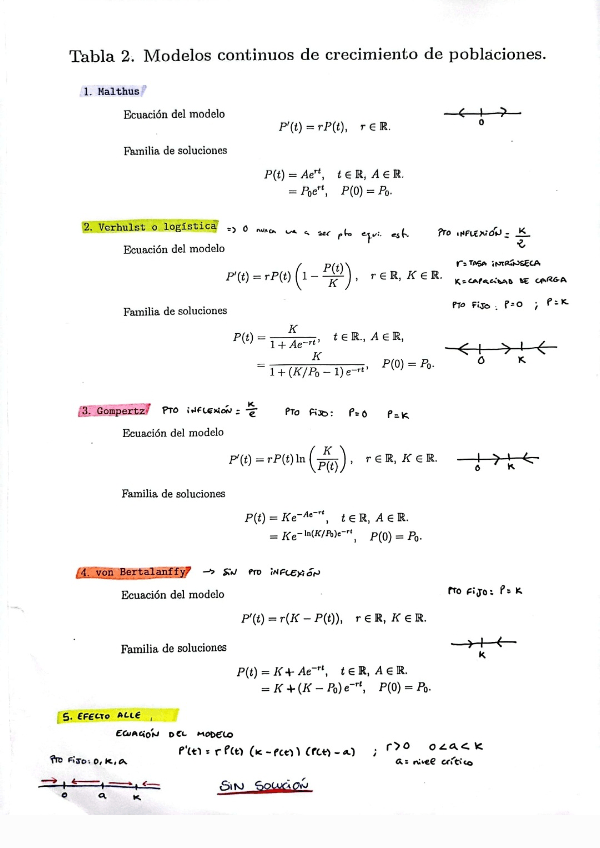 Tabla 2. Modelos continuos de crecimiento de poblaciones.
1. Malthus
Ecuación del modelo
P'(t) = rP(t), r ∈ ℝ.
0
Familia de soluciones
P(t) = Ae^{rt}, t ∈ ℝ, A ∈ ℝ.
= P₀e^{rt}, P(0) = P₀.
2. Verhulst o logística => 0 nunca va a ser pto equi. est. PTO INFLEXIÓN = K/2
Ecuación del modelo
r = TASA INTRÍNSECA
P'(t) = rP(t) (1 − P(t)/K), r ∈ ℝ, K ∈ ℝ.
K = CAPACIDAD DE CARGA
PTO FIJO: P=0 ; P=K
Familia de soluciones
P(t) = K/(1 + Ae^{−rt}), t ∈ ℝ., A ∈ ℝ,
0 K
= K/(1 + (K/P₀ − 1) e^{−rt}), P(0) = P₀.
3. Gompertz PTO INFLEXIÓN = K/e PTO FIJO: P=0 P=K
Ecuación del modelo
P'(t) = rP(t) ln (K/P(t)), r ∈ ℝ, K ∈ ℝ.
0 K
Familia de soluciones
P(t) = Ke^{−Ae^{−rt}}, t ∈ ℝ, A ∈ ℝ.
= Ke^{−ln(K/P₀)e^{−rt}}, P(0) = P₀.
4. von Bertalanffy → SIN PTO INFLEXIÓN
Ecuación del modelo
PTO FIJO: P=K
P'(t) = r(K − P(t)), r ∈ ℝ, K ∈ ℝ.
Familia de soluciones
K
P(t) = K + Ae^{−rt}, t ∈ ℝ, A ∈ ℝ.
= K + (K − P₀) e^{−rt}, P(0) = P₀.
5. EFECTO ALLE
ECUACIÓN DEL MODELO
P'(t) = r P(t) (K − P(t)) (P(t) − a) ; r>0 0<a<K
a = nivel crítico
PTO FIJO: 0, K, a
0 a K
SIN SOLUCIÓN